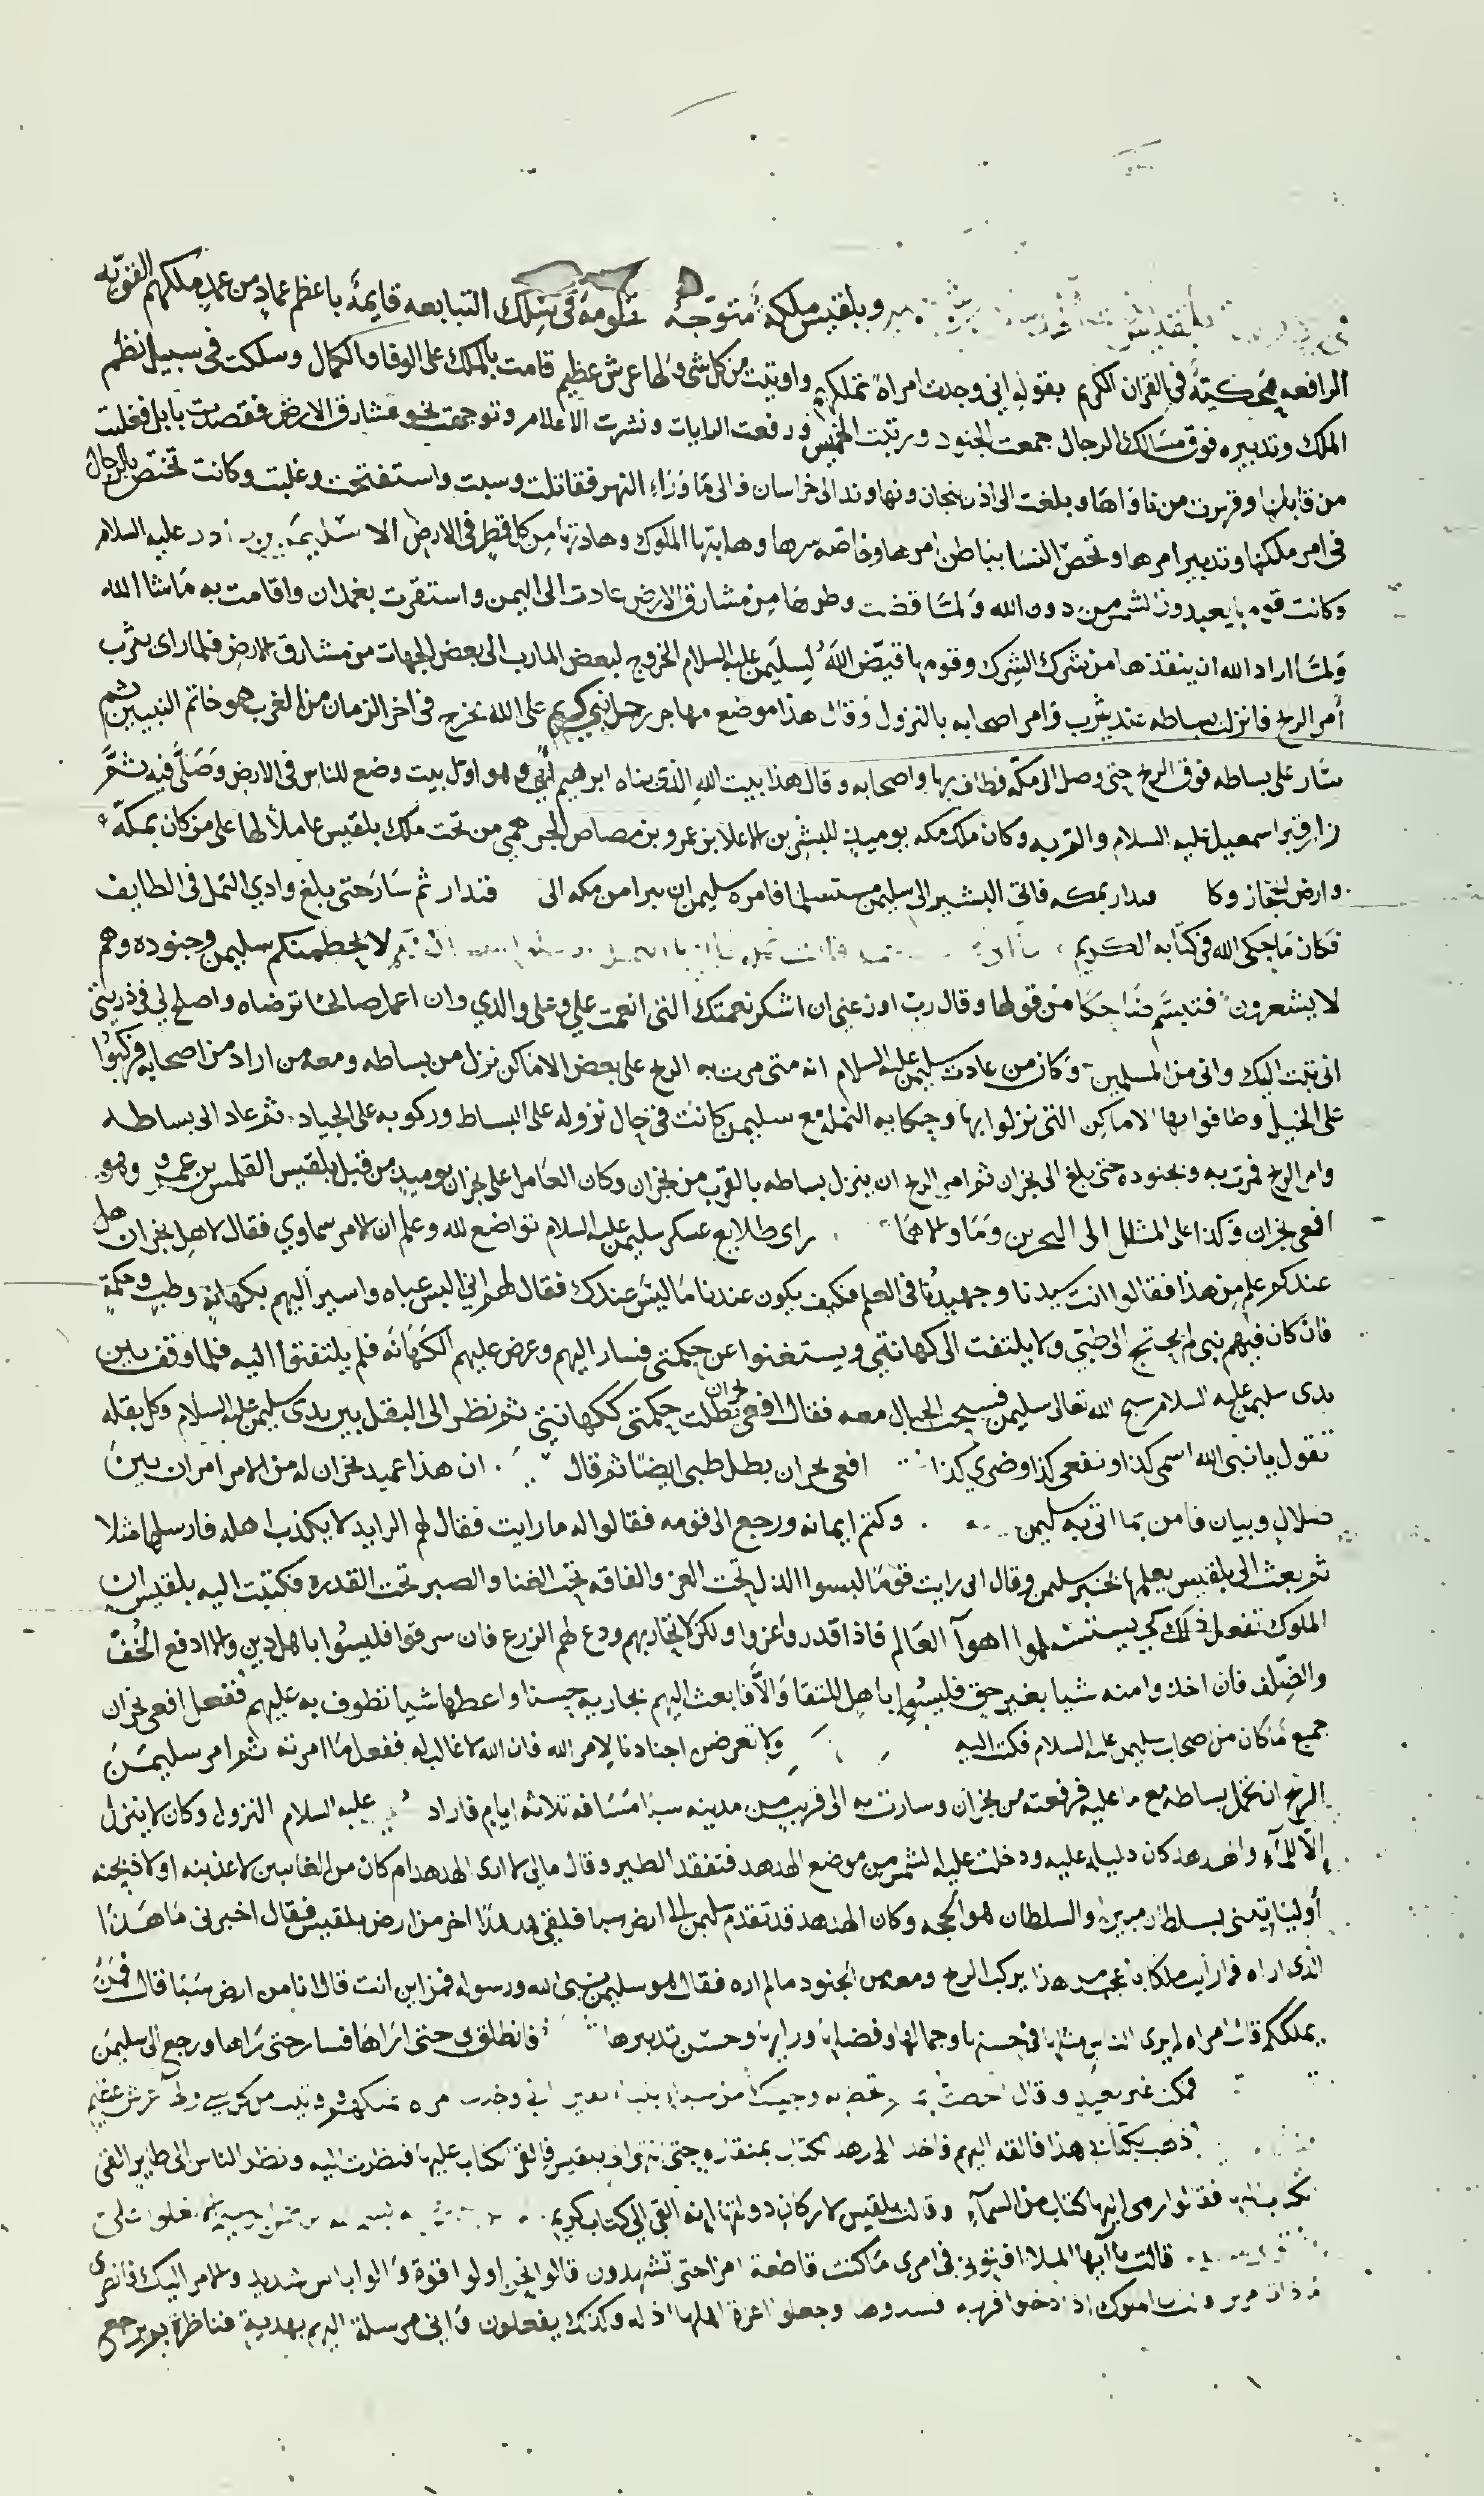 وبلقيس ملكة متوجة في تلك التبابعه قايمة باعظم عماد من عمد ملكهم القويه
الرافعه محكية في القران الكريم بقوله اني وجدت امراة تملكهم واوتيت من كل شى ولها عرش عظيم قامت بالملك على الوفا والكمال وسلكت فى سبيل نظم
الملك وتدبيره فوق مسالك الرجال جمعت الجنود ورتبت الخميس ورفعت الرايات ونشرت الاعلام وتوجهت نحو مشارق الارض فقصدت بابل فغلبت
من قابلها وقهرت من ناواها وبلغت الى اذربيجان ونهاوند الى خراسان والى ما وراء النهر فقاتلت وسبت واستفتحت وغلبت وكانت تختص بالرجال
فى امر ملكها وتدبير امرها وتخص النسا بباطن امرها وخاصه سرها وهابتها الملوك وهادتها من كل قطر فى الارض الا سليمن بن داود عليه السلام
وكانت قومها يعبدون الشمس من دون الله ولما قضت وطرها من مشارق الارض عادت الى اليمن واستقرت بغمدان واقامت به ما شا الله
ولما اراد الله ان ينقذها من شرك الشرك وقومها قيض الله لسليمن عليه السلام الخروج لبعض المارب الى بعض الجهات من مشارق الارض فلما راى يثرب
أمر الريح فانزلت بساطه عند يثرب وامر اصحابه بالنزول وقال هذا موضع مهاجر رجل نبي كريم على الله يخرج فى اخر الزمان من العرب هو خاتم النبيين ثم
سار على بساطه فوق الريح حتى وصل الى مكة فطاف بها واصحابه وقال هذا بيت الله الذى بناه ابرهيم أبي وهو اول بيت وضع للناس فى الارض وصلى فيه ثم
زار قبر اسمعيل عليه السلام والقربه وكان ملك مكه يوميذ للبشر بن الاعلا بن عمرو بن مضاض الجرهمى من تحت ملك بلقيس عاملا لها على من كان بمكة
وارض الحجاز وكا بمكه فاتى البشير الى سليمن مستسلما فامره سليمن ان يبرا من مكه الى قيدار ثم سار حتى بلغ وادي النمل فى الطايف
فكان ما حكى الله فى كتابه الكريم لا يحطمنكم سليمن وجنوده وهم
لا يشعرون فتبسم ضاحكا من قولها وقال رب اوزعنى ان اشكر نعمتك التى انعمت علي وعلى والدي وان اعمل صالحا ترضاه واصلح لي فى ذريتى
انى تبت اليك وانى من المسلمين وكان من عادت سليمن عليه السلام انه متى مرت به الريح على بعض الاماكن نزل من بساطه ومعه من اراد من اصحابه فركبوا
على الخيل وطافوا بها الاماكن التى نزلوا بها وحكايه النمله مع سليمن كانت فى حال نزوله على البساط وركوبه على الجياد ثم عاد الى بساطه
وامر الريح فمرت به وبجنوده حتى بلغ الى نجران ثم امر الريح ان ينزل بساطه بالقرب من نجران وكان العامل على نجران يوميذ من قبل بلقيس القلمس بن عمرو وهو
افعى نجران وكذا على المشلل الى البحرين وما والاهما راى طلايع عسكر سليمن عليه السلام تواضع لله وعلم ان الامر سماوي فقال لاهل نجران هل
عندكم علم من هذا فقالوا انت سيدنا وجهبدنا فى العلم فكيف يكون عندنا ما ليس عندك فقال لهم انى البس عباه واسير اليهم بكهانة وطب وحكمة
فان كان فيهم نبى لم يحتج الى طبى ولا يلتفت الى كهانتي ويستغنوا عن حكمتى فسار اليهم وعرض عليهم الكهانه فلم يلتفتوا اليه فلما وقف بين
يدى سليمن عليه السلام سبح الله تعالى سليمن فسبحت الجبال معه فقال افعى نجران بطلت حكمتى ككهانتي ثم نظر الى البقل بين يدى سليمن عليه السلام وكل بقله
تقول يا نبى الله اسمى كذا ونفعى كذا وضري كذا افعى نجران بطل طبى ايضا ثم قال ان هذا عميد نجران له من الامر امران بين
ضلال وبيان فامن بما اتى به سليمن وكتم ايمانه ورجع الى قومه فقالوا له ما رايت فقال لهم الرايد لا يكذب اهله فارسلها مثلا
ثم بعث الى بلقيس يعلمها بخبر سليمن وقال انى رايت قوما لبسوا الذل تحت العز والفاقه تحت الغنا والصبر تحت القدره فكتبت اليه بلقيس ان
الملوك تفعل ذلك كي يستميلوا اهوآ العالم فاذا قدروا عزوا ولكن لا تحاربهم ودع لهم الزرع فان سرقوا فليسوا باهل دين والا ادفع الخف
والظلف فان اخذوا منه شيا بغير حق فليسوا باهل للتقا والا فابعث اليهم بجاريه حسنا واعطها شيا تطوف به عليهم ففعل افعى نجران
جميع ما كان من اصحاب سليمن عليه السلام فكتب اليه ولا تعرض اجنادنا لامر الله فان الله لا غالب له ففعل ما امرته ثم امر سليمن
الريح ان تحمل بساطه مع ما عليه فرفعته من نجران وسارت به الى قريب من مدينه سبا مسافة ثلاثه ايام فاراد عليه السلام النزول وكان لا ينزل
إلا للمآء والهدهد كان دليله عليه ودخلت عليه الشمس من موضع الهدهد فتفقد الطير وقال مالي لا ارى الهدهد ام كان من الغايبين لاعذبنه او لاذبحنه
أو ليأتيني بسلطان مبين والسلطان هو الحجه وكان الهدهد قد تقدم سليمن الى ارض سبا فلقى هدهدا اخر من ارض بلقيس فقال اخبرنى ما هذا
الذى اراه فما رايت ملكا اعجب من هذا يركب الريح ومعه من الجنود ما لم اره فقال هو سليمن نبى الله ورسوله فمن اين انت قال انا من ارض سبا قال فمن
يملككم قال امراه لم يرى الناس مثلها فى حسنها وجمالها وفضلها ورايها وحسن تدبيرها فانطلق بى حتى اراها فسار حتى راها ورجع الى سليمن
فمكث غير بعيد وقال احطت بما لم تحط به وجيتك من سبا بنبا يقين انى وجدت امراه تملكهم واوتيت من كل شى ولها عرش عظيم
اذهب بكتابى هذا فالقه اليهم فاخذ الهدهد الكتاب بمنقاره حتى اتى بلقيس فالقى الكتاب عليها فنظرت اليه ونظر الناس الى طاير القى
كتابا فقالوا رمى اليها كتاب من السمآء وقالت بلقيس لاركان دولتها انه القى الي كتاب كريم
قالت يا ايها الملا افتونى فى امرى ما كنت قاطعة امرا حتى تشهدون قالوا نحن اولوا قوة واولوا باس شديد والامر اليك فانظرى
ماذا تامرين قالت ان الملوك اذا دخلوا قريه افسدوها وجعلوا اعزة اهلها اذله وكذلك يفعلون وانى مرسلة اليهم بهدية فناظرة بم يرجع